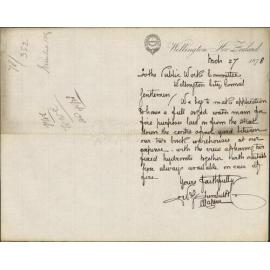 Wellington, New Zealand
March 27 1878
To the Public Works Committee
Wellington City Council
Gentlemen, We beg to make application
to have a full sized water main for
fire purposes laid on from the street
down the centre of yard between
our two brick warehouses at our
expense - with the view of having two
fixed hydrants together with suitable
hose always available in case of
fire.
Yours faithfully
78/352